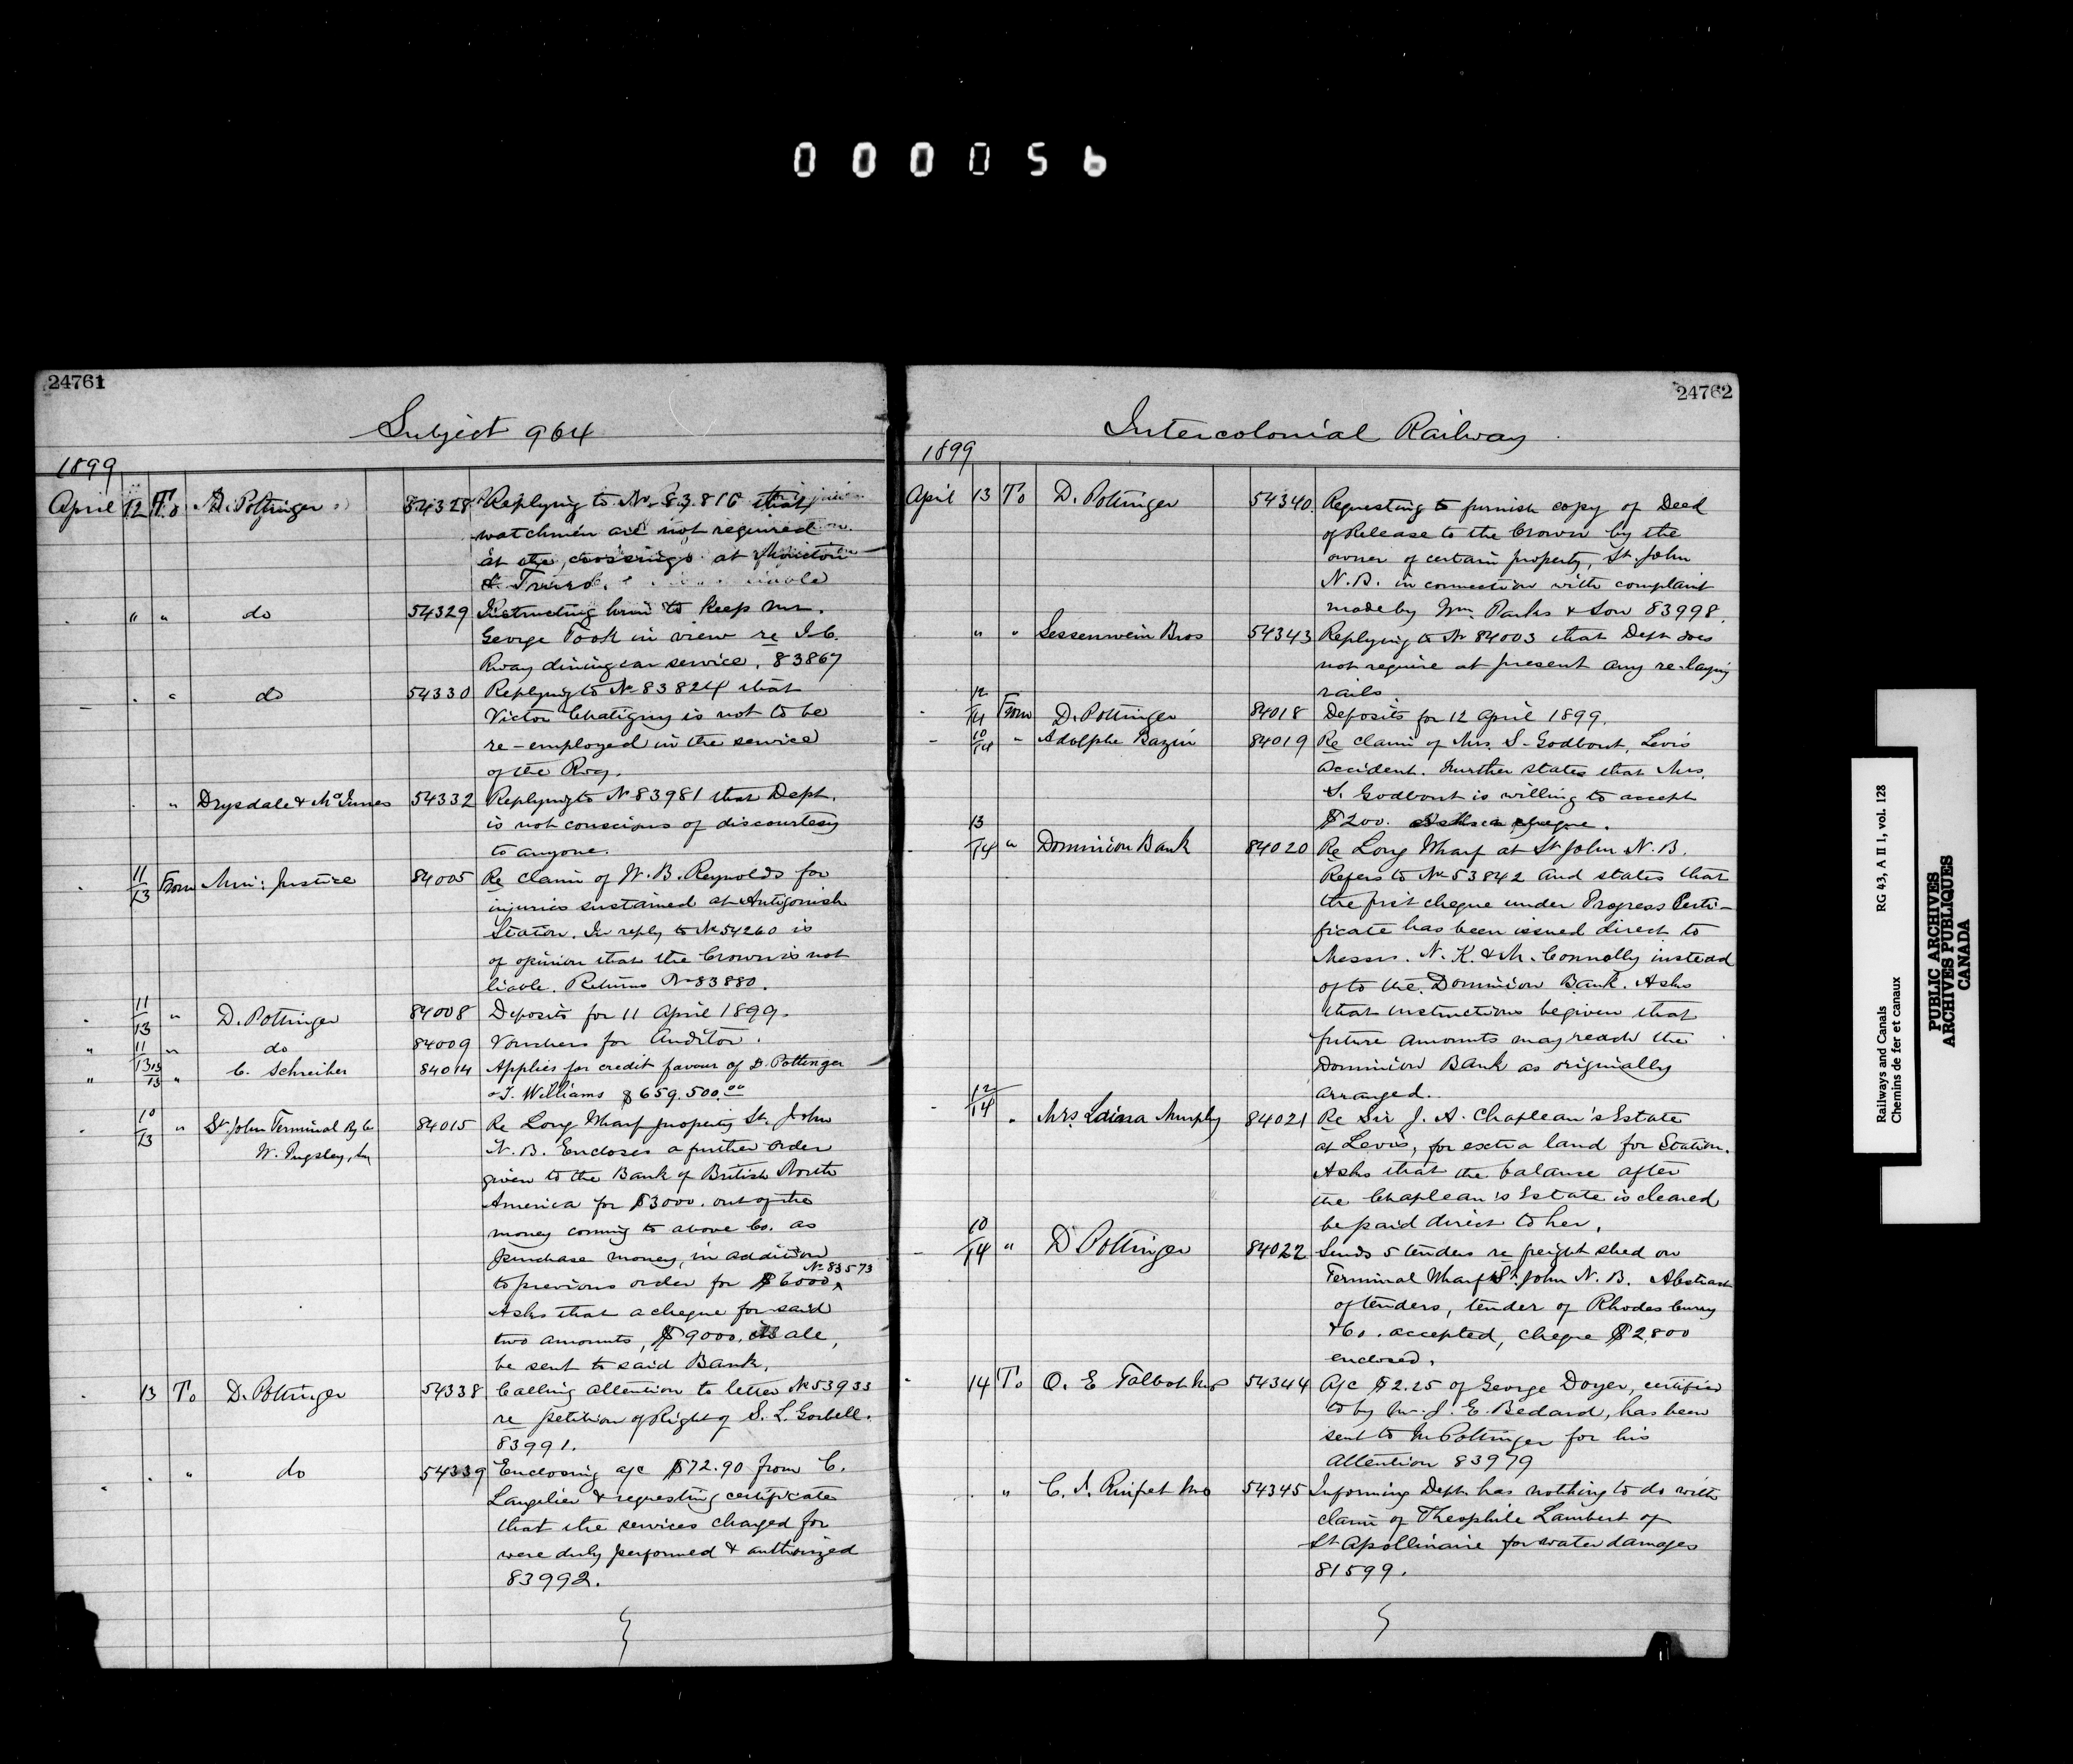 000056
24761
Subject 964
1899
April 12 To D. Pottinger 54328 Replying to No 83816 that
watchmen are not required
at the crossings at Moncton
& Truro.
" " do 54329 Instructing him to keep Mr.
George Took in view re I.C.
Rway dining car service. 83867
" " do 54330 Replying to No 83824 that
Victor Chatigny is not to be
re-employed in the service
of the Rwy.
" Drysdale & McInnes 54332 Replying to No 83981 that Dept.
is not conscious of discourtesy
to anyone.
11/13 From Min: Justice 84005 Re claim of W. B. Reynolds for
injuries sustained at Antigonish
Station. In reply to No 54260 is
of opinion that the Crown is not
liable. Returns No 83880.
11/13 " D. Pottinger 84008 Deposits for 11 April 1899.
" 11/13 " do 84009 Vouchers for Auditor.
" 13/13 " C. Schreiber 84014 Applies for credit favour of D. Pottinger
& T. Williams $659.500.00
10/13 " St John Terminal Ry Co 84015 Re Long Wharf property St. John
W. Pugsley,
N. B. Encloses a further order
given to the Bank of British North
America for $3000. out of the
money coming to above Co. as
purchase money, in addition
to previous order for $6000 No 83573
Asks that a cheque for said
two amounts, $9000.
be sent to said Bank.
13 To D. Pottinger 54338 Calling attention to letter No 53933
re petition of Right of S. L. Gorbell.
83991.
" do 54339 Enclosing a/c $72.90 from C.
Langelier & requesting certificate
that the services charged for
were duly performed & authorized
83992.
24762
Intercolonial Railway
1899
April 13 To D. Pottinger 54340 Requesting to furnish copy of Deed
of Release to the Crown by the
owner of certain property, St. John
N.B. in connection with complaint
made by Wm. Parks & Son 83998.
" " Sessenwein Bros 54343 Replying to No 84003 that Dept does
not require at present any re-laying
rails.
12/14 From D. Pottinger 84018 Deposits for 12 April 1899.
10/14 " Adolphe Bazin 84019 Re claim of Mrs. S. Godbout, Levis
accident. Further states that Mrs.
S. Godbout is willing to accept
$200.
13/14 " Dominion Bank 84020 Re Long Wharf at St John N. B.
Refers to No 53842 and states that
the first cheque under Progress Certi-
ficate has been issued direct to
Messrs. N. K. & M. Connolly instead
of to the Dominion Bank. Asks
that instructions be given that
future amounts may reach the
Dominion Bank as originally
arranged.
12/14 " Mrs. Murphy 84021 Re Sir J. A. Chapleau's Estate
at Levis, for extra land for Station.
Asks that the balance after
the Chapleau's Estate is cleared
be paid direct to her.
10/14 " D Pottinger 84022 Sends 5 tenders re freight shed on
Terminal Wharf St. John N. B. Abstract
of tenders, tender of Rhodes Curry
& Co. accepted, cheque $2,800
enclosed.
14 To O. E Talbot MP 54344 A/c $2.25 of George Doyer, certified
to by Mr. J. E. Bedard, has been
sent to Mr Pottinger for his
attention 83979
" C. I. Rinfret MP 54345 Informing Dept. has nothing to do with
claim of Theophile Lambert of
St Apollinaire for water damages
81599.
Railways and Canals RG 43, A II 1, vol. 128
Chemins de fer et canaux
PUBLIC ARCHIVES
ARCHIVES PUBLIQUES
CANADA